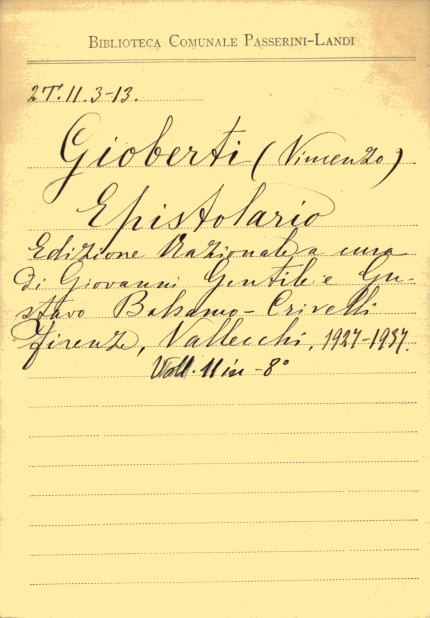 BIBLIOTECA COMUNALE PASSERINI-LANDI
2T.II.3-13.
Gioberti (Vincenzo)
Epistolario
Edizione Nazionale a cura
di Giovanni Gentile e Gu-
stavo Balsamo-Crivelli
Firenze, Vallecchi, 1927-1937.
Voll. 11 in-8°